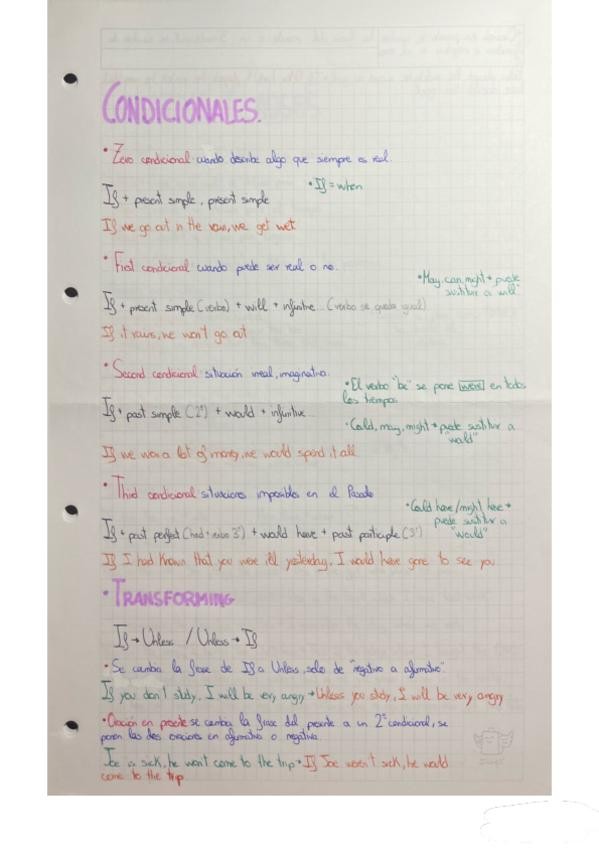 CONDICIONALES.
• Zero condicional: cuando describe algo que siempre es real.
• If = when
If + present simple, present simple
If we go out in the rain, we get wet
• First condicional: cuando puede ser real o no.
• May, can, might → puede
sustituir a "will"
If + present simple (verbo) + will + infinitive... (verbo se queda igual)
If it rains, we won't go out
• Second condicional: situación irreal, imaginativa.
• El verbo "be" se pone were en todos
los tiempos.
If + past simple (2ª) + would + infinitive...
• Could, may, might → puede sustituir a
"would"
If we won a lot of money, we would spend it all
• Third condicional situaciones imposibles en el Pasado
• Could have/might have →
puede sustituir a
"would"
If + past perfect (had + verbo 3ª) + would have + past participle (3ª)
If I had known that you were ill yesterday, I would have gone to see you
• TRANSFORMING
If → Unless / Unless → If
• Se cambia la frase de If a Unless, solo de "negativo a afirmativo".
If you don't study, I will be very angry → Unless you study, I will be very angry
• Oración en presente se cambia la frase del presente a un 2º condicional, se
ponen las dos oraciones en afirmativo o negativo.
Joe is sick, he won't come to the trip → If Joe weren't sick, he would
come to the trip